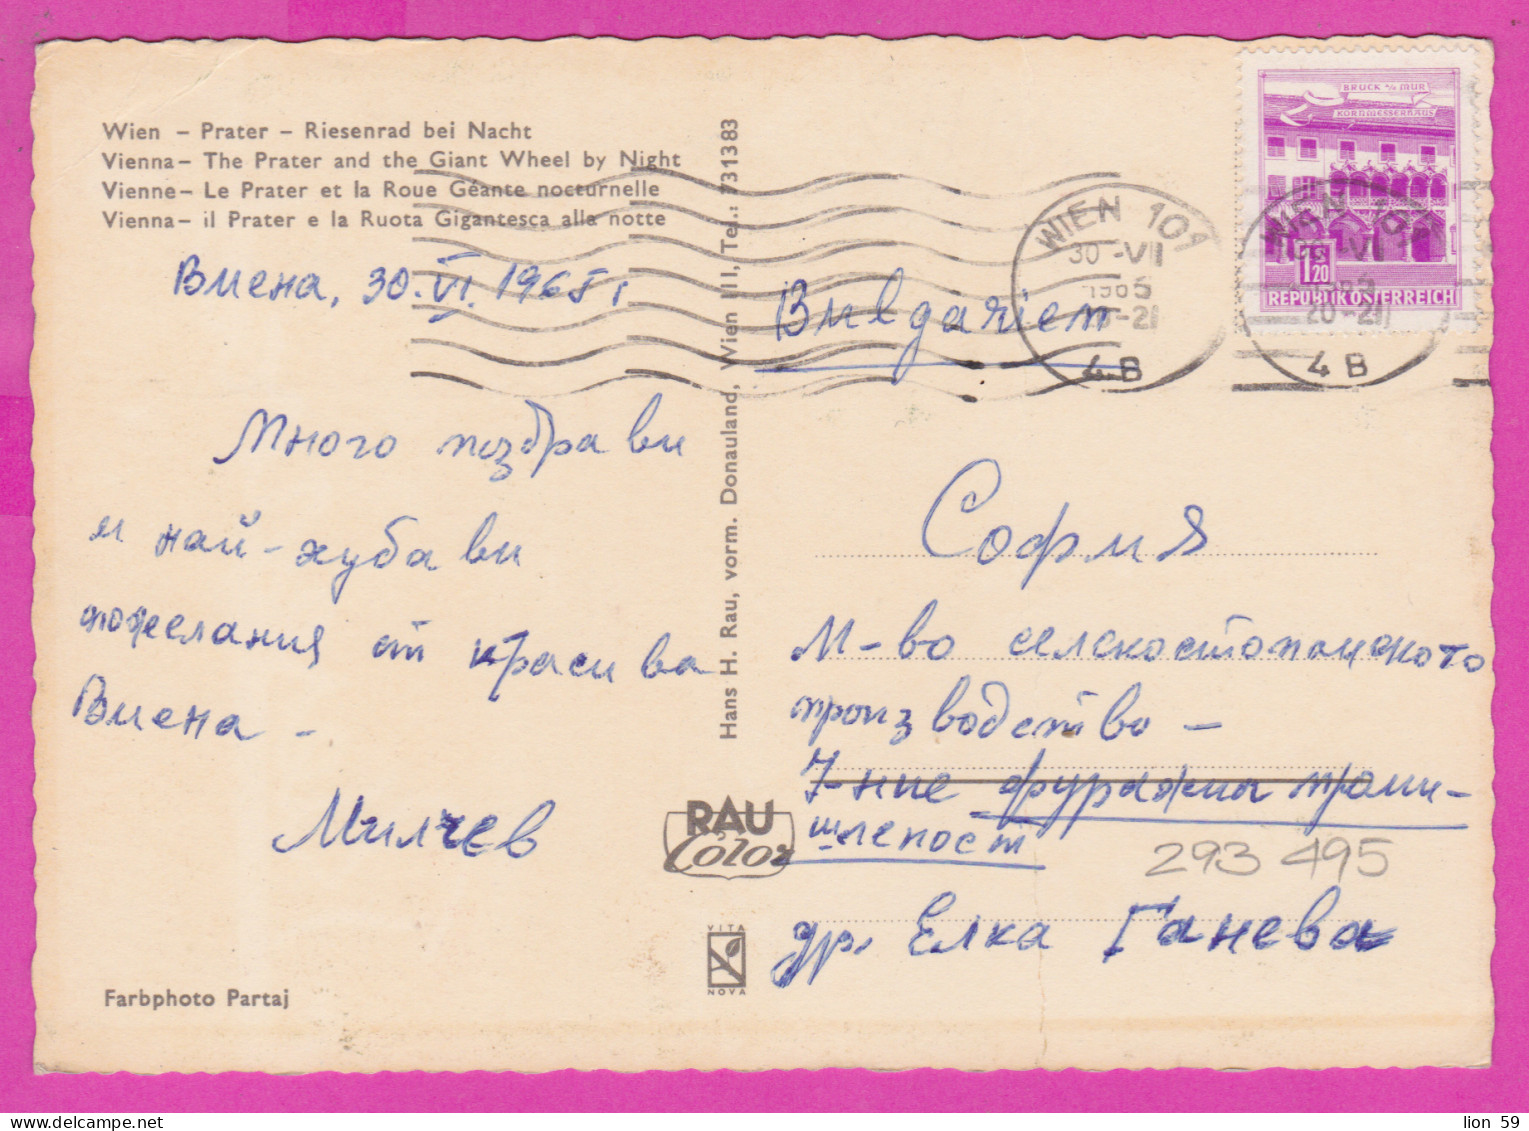 Wien – Prater – Riesenrad bei Nacht
Vienna – The Prater and the Giant Wheel by Night
Vienne – Le Prater et la Roue Géante nocturnelle
Vienna – il Prater e la Ruota Gigantesca alla notte
Виена, 30.VI.1965 г
Много поздрави
и най-хубави
пожелания от красива
Виена –
Милчев
Farbphoto Partaj
Hans H. Rau, vorm. Donauland, Wien III, Tel.: 731383
RAU
Color
VITA
NOVA
BRUCK a/d MUR
KORNMESSERHAUS
1S
20
REPUBLIK ÖSTERREICH
WIEN 101
30 -VII
1965
-21
4 B
WIEN 101
-VII
20-21
4 B
Bulgarien
София
М-во селскостопанското
производство –
У-ние фуражна проми-
шленост
293 495
др. Елка Ганева
lion 59